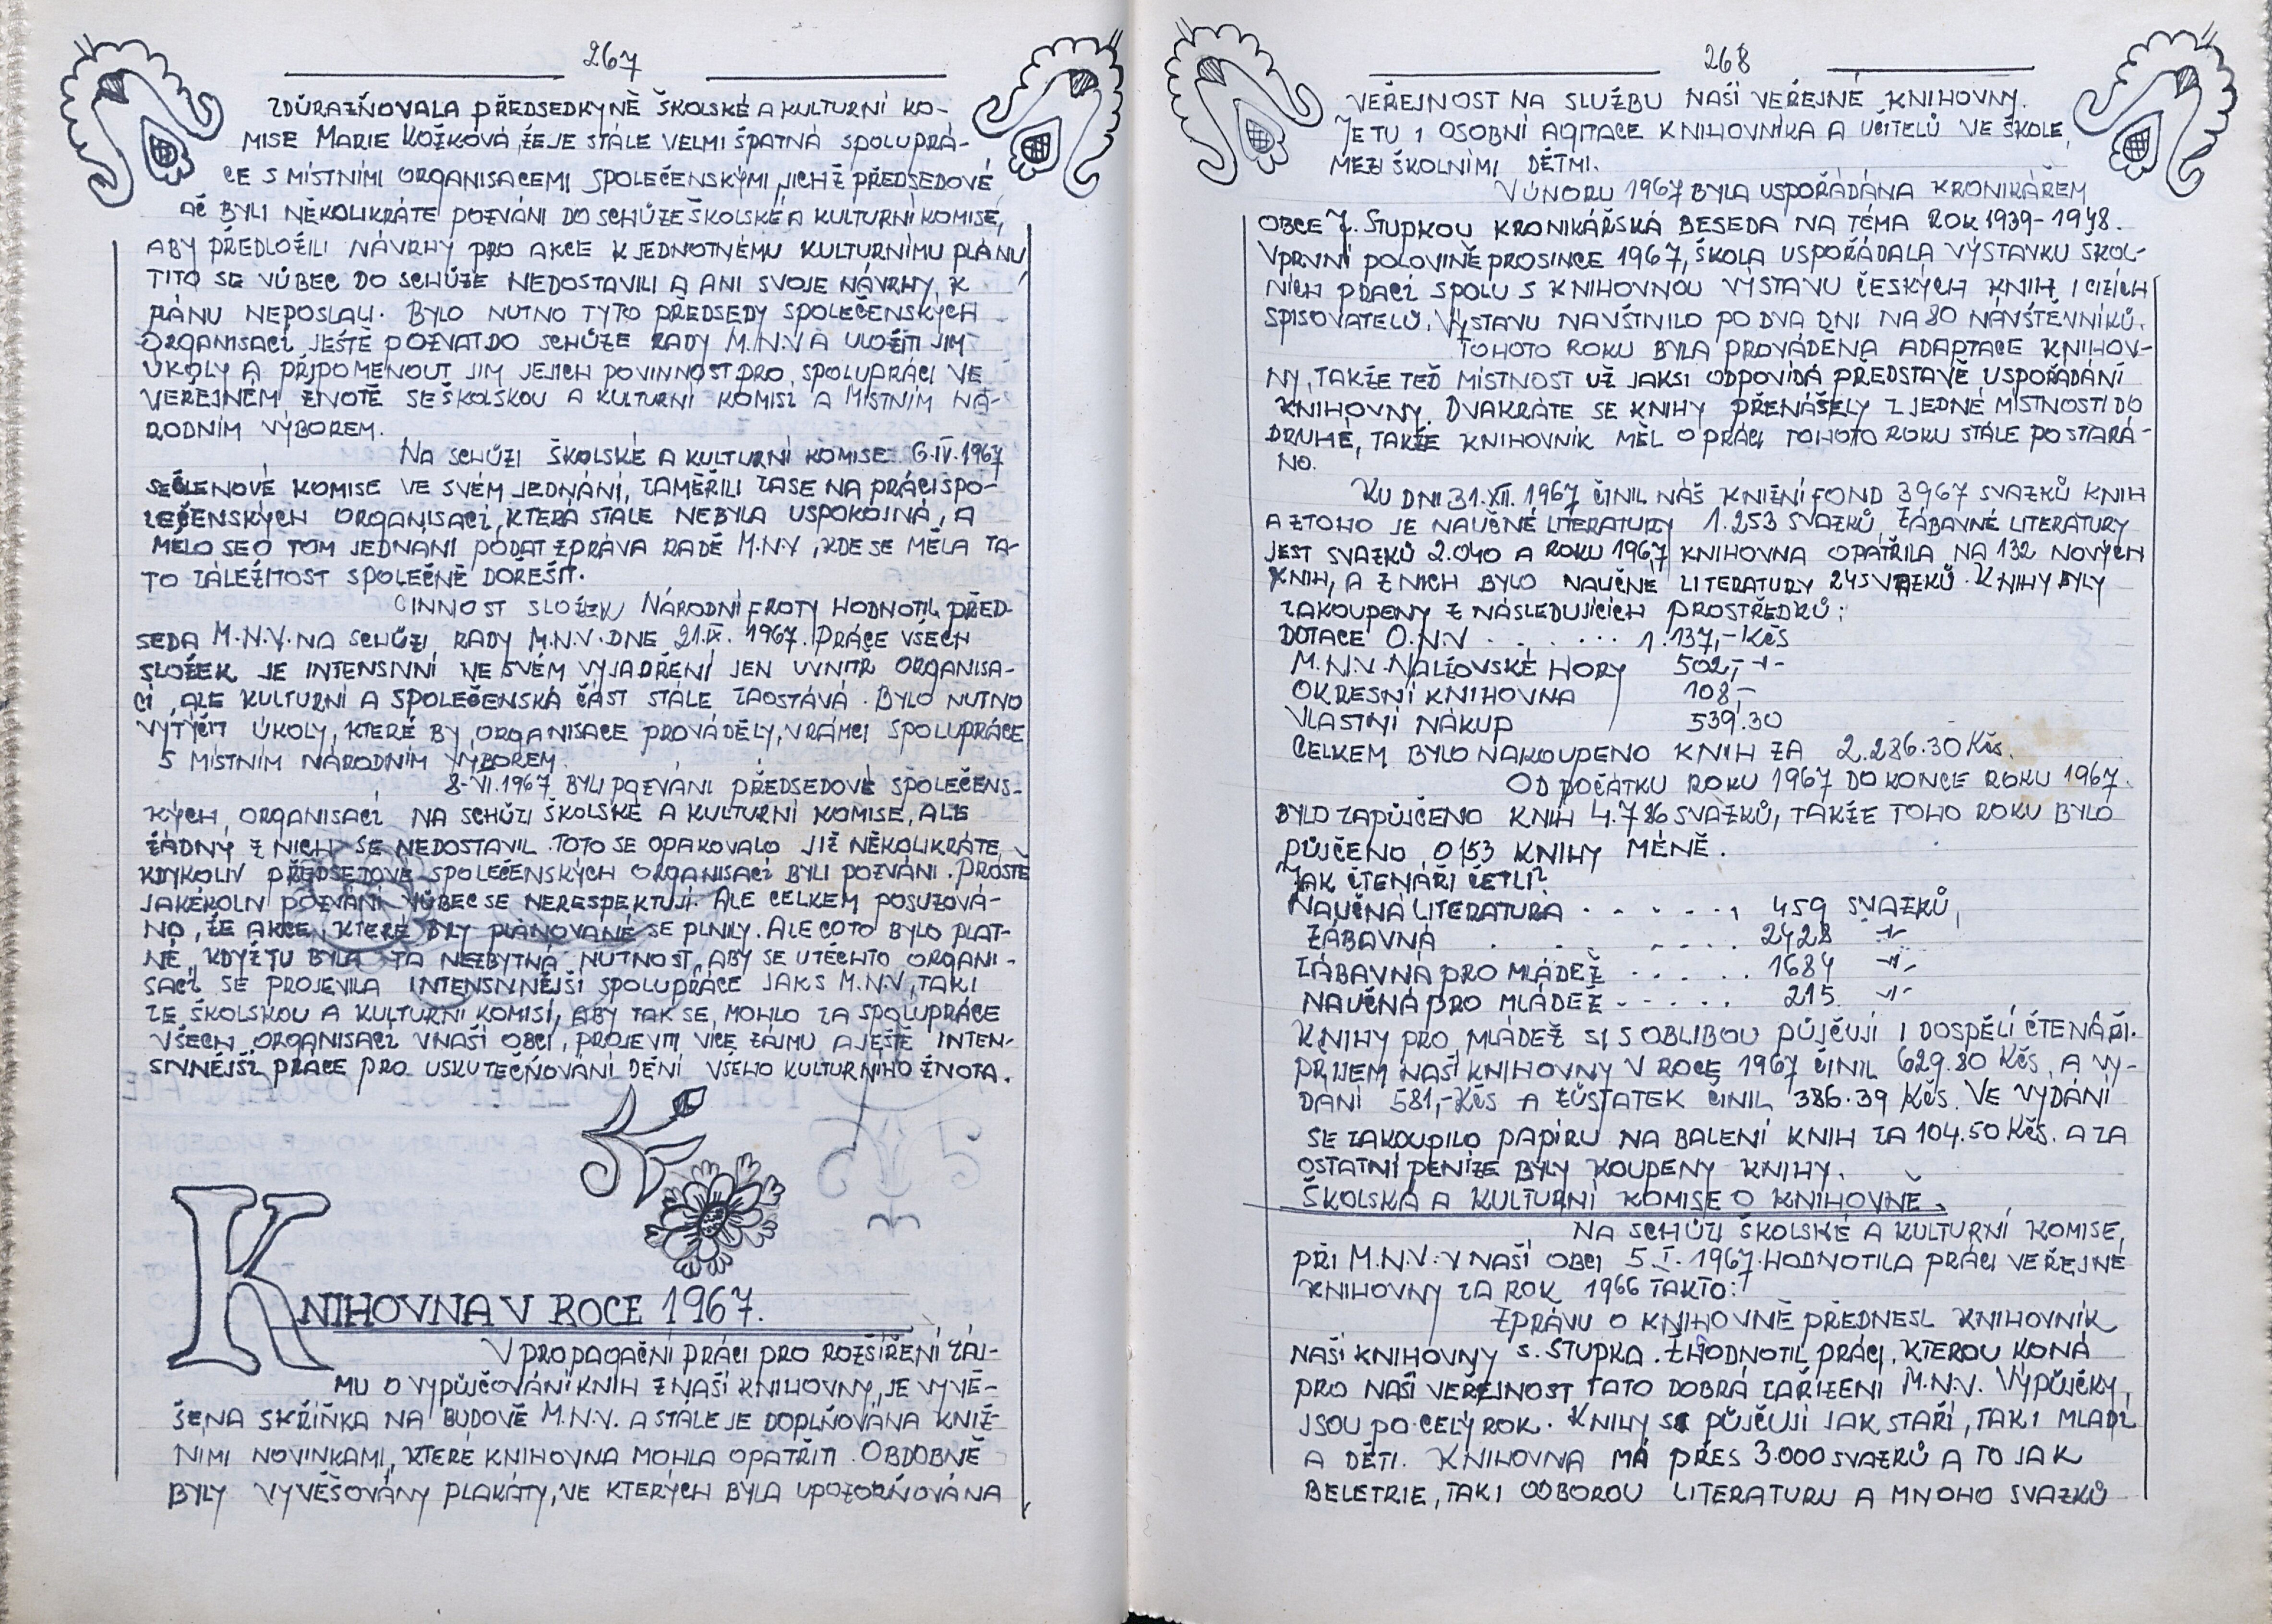 267
ZDŮRAZŇOVALA PŘEDSEDKYNĚ ŠKOLSKÉ A KULTURNÍ KO-
MISE MARIE KOŽKOVÁ, ŽE JE STÁLE VELMI ŠPATNÁ SPOLUPRÁ-
CE S MÍSTNÍMI ORGANISACEMI SPOLEČENSKÝMI, JICHŽ PŘEDSEDOVÉ
AČ BYLI NĚKOLIKRÁTE POZVÁNI DO SCHŮZE ŠKOLSKÉ A KULTURNÍ KOMISE,
ABY PŘEDLOŽILI NÁVRHY PRO AKCE K JEDNOTNÉMU KULTURNÍMU PLÁNU,
TITO SE VŮBEC DO SCHŮZE NEDOSTAVILI A ANI SVOJE NÁVRHY K
PLÁNU NEPOSLALI. BYLO NUTNO TYTO PŘEDSEDY SPOLEČENSKÝCH
ORGANISACÍ JEŠTĚ POZVAT DO SCHŮZE RADY M.N.V A ULOŽITI JIM
ÚKOLY A PŘIPOMENOUT JIM JEJICH POVINNOST PRO SPOLUPRÁCI VE
VEŘEJNÉM ŽIVOTĚ SE ŠKOLSKOU A KULTURNÍ KOMISÍ A MÍSTNÍM NÁ-
RODNÍM VÝBOREM.
NA SCHŮZI ŠKOLSKÉ A KULTURNÍ KOMISE 6.IV.1967
SE ČLENOVÉ KOMISE VE SVÉM JEDNÁNÍ, ZAMĚŘILI ZASE NA PRÁCI SPO-
LEČENSKÝCH ORGANISACÍ, KTERÁ STÁLE NEBYLA USPOKOJNÁ, A
MĚLO SE O TOM JEDNÁNÍ PODAT ZPRÁVA RADĚ M.N.V, KDE SE MĚLA TA-
TO ZÁLEŽITOST SPOLEČNĚ DOŘEŠIT.
ČINNOST SLOŽEK NÁRODNÍ FROTY HODNOTIL PŘED-
SEDA M.N.V. NA SCHŮZI RADY M.N.V. DNE 21.IX. 1967. PRÁCE VŠECH
SLOŽEK JE INTENSIVNÍ VE SVÉM VYJÁDŘENÍ JEN UVNITŘ ORGANISA-
CÍ, ALE KULTURNÍ A SPOLEČENSKÁ ČÁST STÁLE ZAOSTÁVÁ. BYLO NUTNO
VYTÝČIT ÚKOLY, KTERÉ BY ORGANISACE PROVÁDĚLY, V RÁMCI SPOLUPRÁCE
S MÍSTNÍM NÁRODNÍM VÝBOREM.
8.VI.1967 BYLI POZVÁNI PŘEDSEDOVÉ SPOLEČENS-
KÝCH ORGANISACÍ NA SCHŮZI ŠKOLSKÉ A KULTURNÍ KOMISE, ALE
ŽÁDNÝ Z NICH SE NEDOSTAVIL. TOTO SE OPAKOVALO JIŽ NĚKOLIKRÁTE,
KDYKOLIV PŘEDSEDOVÉ SPOLEČENSKÝCH ORGANISACÍ BYLI POZVÁNI. PROSTĚ
JAKÉKOLN POZVÁNÍ VŮBEC SE NERESPEKTUJÍ. ALE CELKEM POSUZOVÁ-
NO, ŽE AKCE, KTERÉ BYLY PLÁNOVANÉ SE PLNILY. ALE CO TO BYLO PLAT-
NÉ, KDYŽ TU BYLA TA NEZBYTNÁ NUTNOST, ABY SE U TĚCHTO ORGANI-
SACÍ SE PROJEVILA INTENSIVNĚJŠÍ SPOLUPRÁCE JAK S M.N.V, TAK I
ZE ŠKOLSKOU A KULTURNÍ KOMISÍ, ABY TAK SE MOHLO ZA SPOLUPRÁCE
VŠECH ORGANISACÍ V NAŠÍ OBCI, PROJEVITI VÍCE ZÁJMU A JEŠTĚ INTEN-
SIVNĚJŠÍ PRÁCE PRO USKUTEČŇOVÁNÍ DĚNÍ VŠEHO KULTURNÍHO ŽIVOTA.
KNIHOVNA V ROCE 1967.
V PROPAGAČNÍ PRÁCI PRO ROZŠÍŘENÍ ZÁJ-
MU O VYPŮJČOVÁNÍ KNIH Z NAŠÍ KNIHOVNY, JE VYVĚ-
ŠENA SKŘÍŇKA NA BUDOVĚ M.N.V. A STÁLE JE DOPLŇOVÁNA KNIŽ-
NÍMI NOVINKAMI, KTERÉ KNIHOVNA MOHLA OPATŘITI. OBDOBNĚ
BYLY VYVĚŠOVÁNY PLAKÁTY, VE KTERÝCH BYLA UPOZORŇOVÁNA
268
VEŘEJNOST NA SLUŽBU NAŠÍ VEŘEJNÉ KNIHOVNY.
JE TU I OSOBNÍ AGITACE KNIHOVNÍKA A UČITELŮ VE ŠKOLE,
MEZI ŠKOLNÍMI DĚTMI.
V ÚNORU 1967 BYLA USPOŘÁDÁNA KRONIKÁŘEM
OBCE J. STUPKOU KRONIKÁŘSKÁ BESEDA NA TÉMA ROK 1939-1948.
V PRVNÍ POLOVINĚ PROSINCE 1967, ŠKOLA USPOŘÁDALA VÝSTAVKU ŠKOL-
NÍCH PRACÍ SPOLU S KNIHOVNOU VÝSTAVU ČESKÝCH KNIH I CIZÍCH
SPISOVATELŮ. VÝSTAVU NAVŠTÍVILO PO DVA DNI NA 80 NÁVŠTĚVNÍKŮ.
TOHOTO ROKU BYLA PROVÁDĚNA ADAPTACE KNIHOV-
NY, TAKŽE TEĎ MÍSTNOST UŽ JAKSI ODPOVÍDÁ PŘEDSTAVĚ USPOŘÁDÁNÍ
KNIHOVNY. DVAKRÁTE SE KNIHY PŘENÁŠELY Z JEDNÉ MÍSTNOSTI DO
DRUHÉ, TAKŽE KNIHOVNÍK MĚL O PRÁCI TOHOTO ROKU STÁLE POSTARÁ-
NO.
KU DNI 31.XII.1967 ČINIL NÁŠ KNIŽNÍ FOND 3967 SVAZKŮ KNIH
A Z TOHO JE NAUČNÉ LITERATURY 1.253 SVAZKŮ, ZÁBAVNÉ LITERATURY
JEST SVAZKŮ 2.040 A ROKU 1967 KNIHOVNA OPATŘILA NA 132 NOVÝCH
KNIH, A Z NICH BYLO NAUČNÉ LITERATURY 24 SVAZKŮ. KNIHY BYLY
ZAKOUPENY Z NÁSLEDUJÍCÍCH PROSTŘEDKŮ:
DOTACE O.N.V . . . . . . 1.137,- Kčs
M.N.V. NALŽOVSKÉ HORY 502,- -"-
OKRESNÍ KNIHOVNA 108,-
VLASTNÍ NÁKUP 539.30
CELKEM BYLO NAKOUPENO KNIH ZA 2.286.30 Kčs.
OD POČÁTKU ROKU 1967 DO KONCE ROKU 1967.
BYLO ZAPŮJČENO KNIH 4.786 SVAZKŮ, TAKŽE TOHO ROKU BYLO
PŮJČENO O 153 KNIHY MÉNĚ.
JAK ČTENÁŘI ČETLI?
NAUČNÁ LITERATURA . . . . . , 459 SVAZKŮ,
ZÁBAVNÁ . . . . . . 2428 -"-
ZÁBAVNÁ PRO MLÁDEŽ . . . . . 1684 -"-
NAUČNÁ PRO MLÁDEŽ . . . . . 215 -"-
KNIHY PRO MLÁDEŽ SI S OBLIBOU PŮJČUJÍ I DOSPĚLÍ ČTENÁŘI.
PŘÍJEM NAŠÍ KNIHOVNY V ROCE 1967 ČINIL 629.80 Kčs, A VY-
DÁNÍ 581,- Kčs A ZŮSTATEK ČINIL 386.39 Kčs. VE VYDÁNÍ
SE ZAKOUPILO PAPÍRU NA BALENÍ KNIH ZA 104.50 Kčs. A ZA
OSTATNÍ PENÍZE BYLY KOUPENY KNIHY.
ŠKOLSKÁ A KULTURNÍ KOMISE O KNIHOVNĚ.
NA SCHŮZI ŠKOLSKÉ A KULTURNÍ KOMISE,
PŘI M.N.V. V NAŠÍ OBCI 5.I.1967. HODNOTILA PRÁCI VEŘEJNÉ
KNIHOVNY ZA ROK 1966 TAKTO:
ZPRÁVU O KNIHOVNĚ PŘEDNESL KNIHOVNÍK
NAŠÍ KNIHOVNY S. STUPKA. ZHODNOTIL PRÁCI, KTEROU KONÁ
PRO NAŠI VEŘEJNOST TATO DOBRÁ ZAŘÍZENÍ M.N.V. VÝPŮJČKY
JSOU PO CELÝ ROK. KNIHY SI PŮJČUJÍ JAK STAŘÍ, TAK I MLADÍ
A DĚTI. KNIHOVNA MÁ PŘES 3.000 SVAZKŮ A TO JAK
BELETRIE, TAK I ODBOROU LITERATURU A MNOHO SVAZKŮ